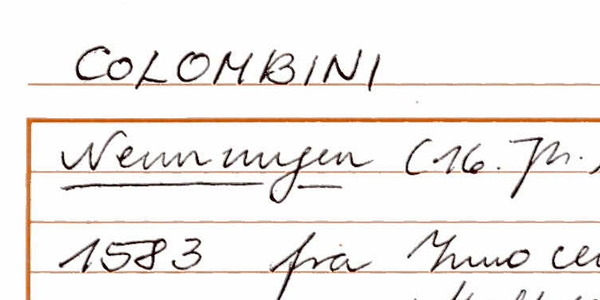 COLOMBINI
Nennungen (16. Jh.)
1583 fra